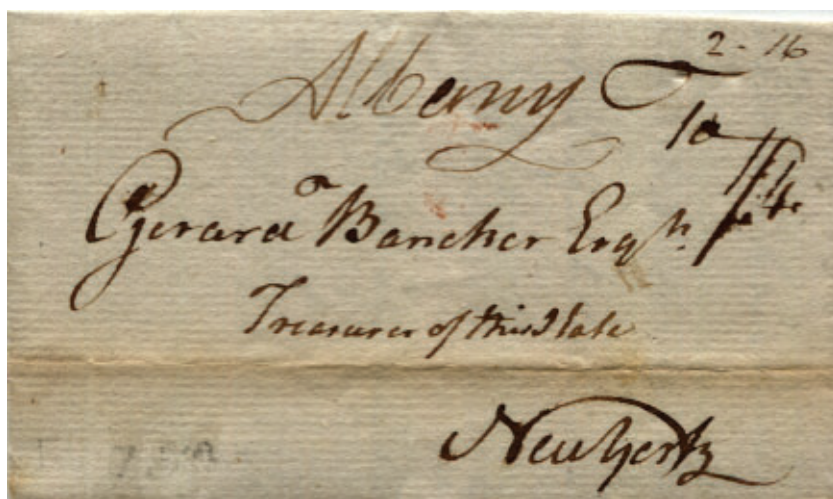 Albany 2 - 16
10
Gerard Bancker Esqr. /4
Treasurer of this State
New York